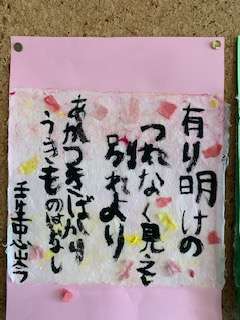 有り明けの
つれなく見え
別れより
あかつきばかり
うきものはなし
壬生忠岑